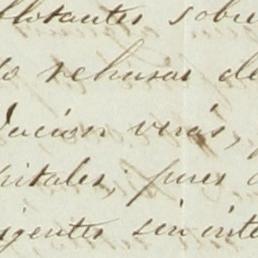 flotantes sobre
o rehusar de
dacion verás,
pitales; pues
igentes sin inte